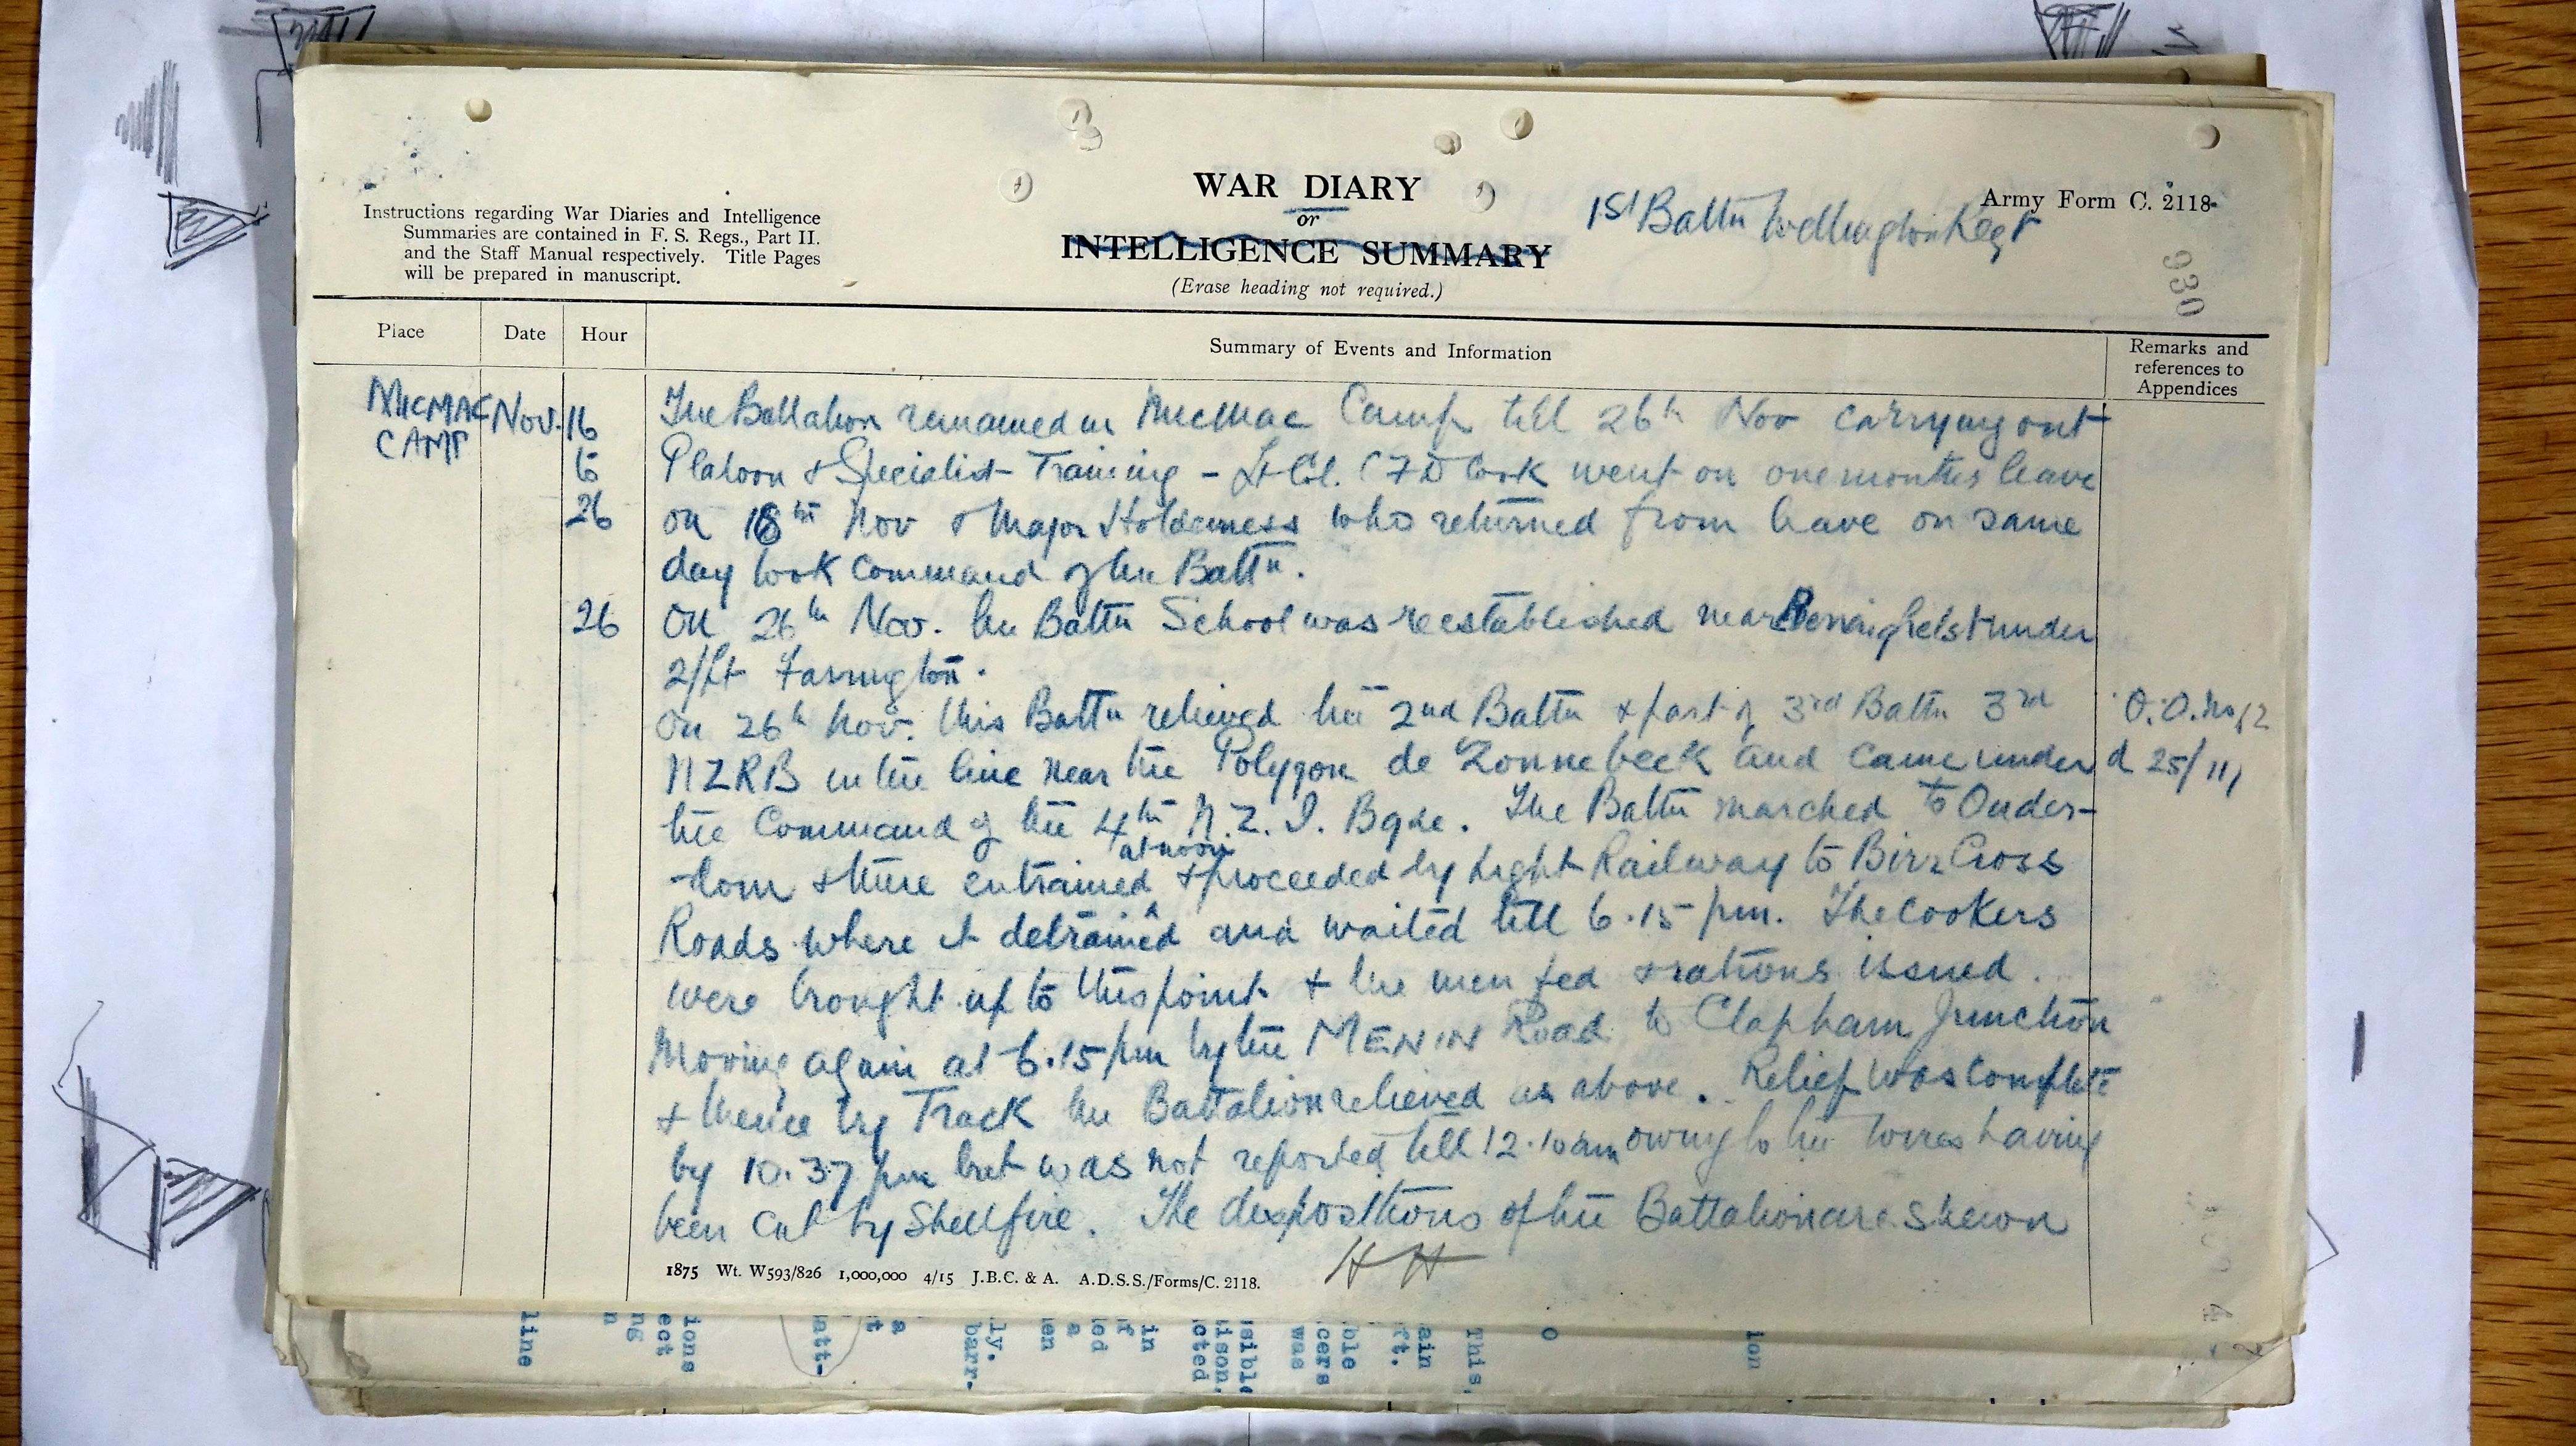 WAR DIARY
or
INTELLIGENCE SUMMARY
(Erase heading not required.)
Instructions regarding War Diaries and Intelligence
Summaries are contained in F. S. Regs., Part II.
and the Staff Manual respectively. Title Pages
will be prepared in manuscript.
1st Battn Wellington Regt
Army Form C. 2118.
930
Place Date Hour Summary of Events and Information Remarks and
references to
Appendices
MICMAC Nov. 16 The Battalion remained in MicMac Camp till 26th Nov carrying out
CAMP to Platoon & Specialist Training - Lt Col. C F D Cook went on one months leave
26 on 18th Nov & Major Holderness who returned from leave on same
day took command of the Battn.
26 On 26th Nov. the Battn School was reestablished near Reninghelst under
2/Lt Farrington.
On 26th Nov. this Battn relieved the 2nd Battn & part of 3rd Battn 3rd O.O. No 12
NZRB in the line near the Polygon de Zonnebeck and came under d 25/11/
the Command of the 4th N.Z.I. Bgde. The Battn marched to Ouder-
-dom & there entrained at noon & proceeded by Light Railway to Birr Cross
Roads where it detrained and waited till 6.15 pm. The Cookers
were brought up to this point & the men fed & rations issued.
Moving again at 6.15 pm by the MENIN Road to Clapham Junction
& thence by Track the Battalion relieved as above. Relief was complete
by 10.37 pm but was not reported till 12.10 am owing to the wires having
been cut by Shellfire. The dispositions of the Battalion are shewn
HH
1875 Wt. W593/826 1,000,000 4/15 J.B.C. & A. A.D.S.S./Forms/C. 2118.
line
ions
ect
ng
n
att-
a
t
ly.
barr-
en
a
ed
f
in
sible
ison.
cted
cers
was
ble
ain
rt.
This,
o
ion